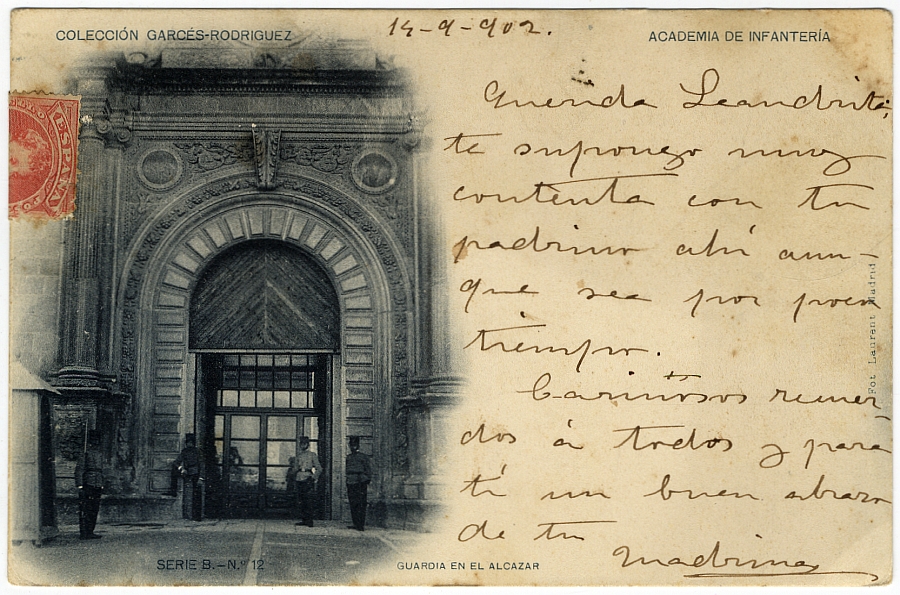 COLECCIÓN GARCÉS-RODRIGUEZ
14-9-902.
ACADEMIA DE INFANTERÍA
ESPAÑA
Querida Leandrita,
te supongo muy
contenta con tu
padrino ahí aun-
que sea por poco
tiempo.
Cariñosos recuer
dos á todos y para
tí un buen abrazo
de tu
Madrina
Fot Laurent Madrid
SERIE B.-N.º 12
GUARDIA EN EL ALCAZAR